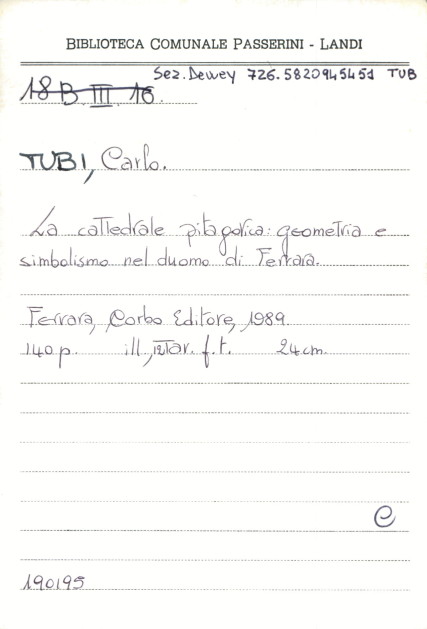 BIBLIOTECA COMUNALE PASSERINI - LANDI
Sez. Dewey 726.5820945451 TUB
18 B. III. 16.
TUBI, Carlo.
La cattedrale pitagorica: geometria e
simbolismo nel duomo di Ferrara.
Ferrara, Corbo Editore, 1989.
140 p. ill., 12 Tav. f.t. 24 cm.
C
190195